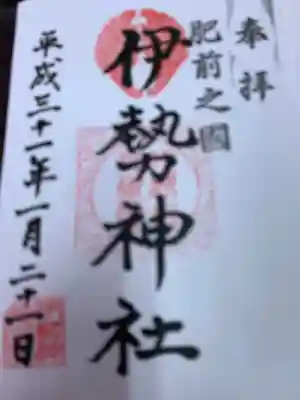 奉拝
肥前之国
伊勢神社
平成三十一年一月二十一日